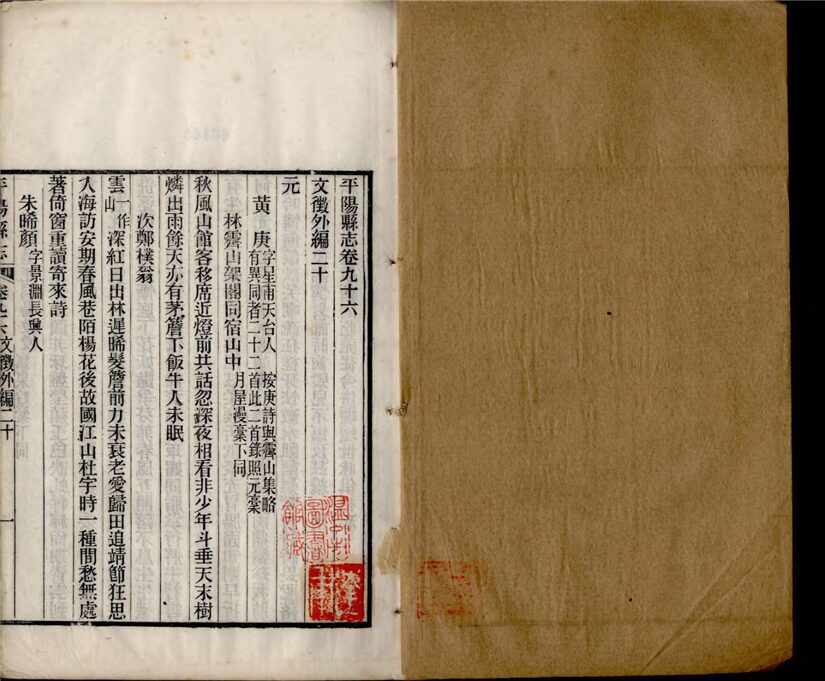 平陽縣志卷九十六
文徵外編二十
元
黃庚字星甫天台人 按庚詩與霽山集略
有異同者二十二首此二首錄照元稾
林霽山架閣同宿山中月屋漫稾下同
秋風山館客移席近燈前共話忽深夜相看非少年斗垂天末樹
燐出雨餘天亦有茅簷下飯牛人未眠
次鄭樸翁
雲一作山深紅日出林遲晞髮簷前力未衰老愛歸田追靖節狂思
入海訪安期春風巷陌楊花後故國江山杜宇時一種閒愁無處
著倚窗重讀寄來詩
朱晞顏字景淵長興人
平陽縣志 卷九十六文徵外編二十 一
圖書館藏